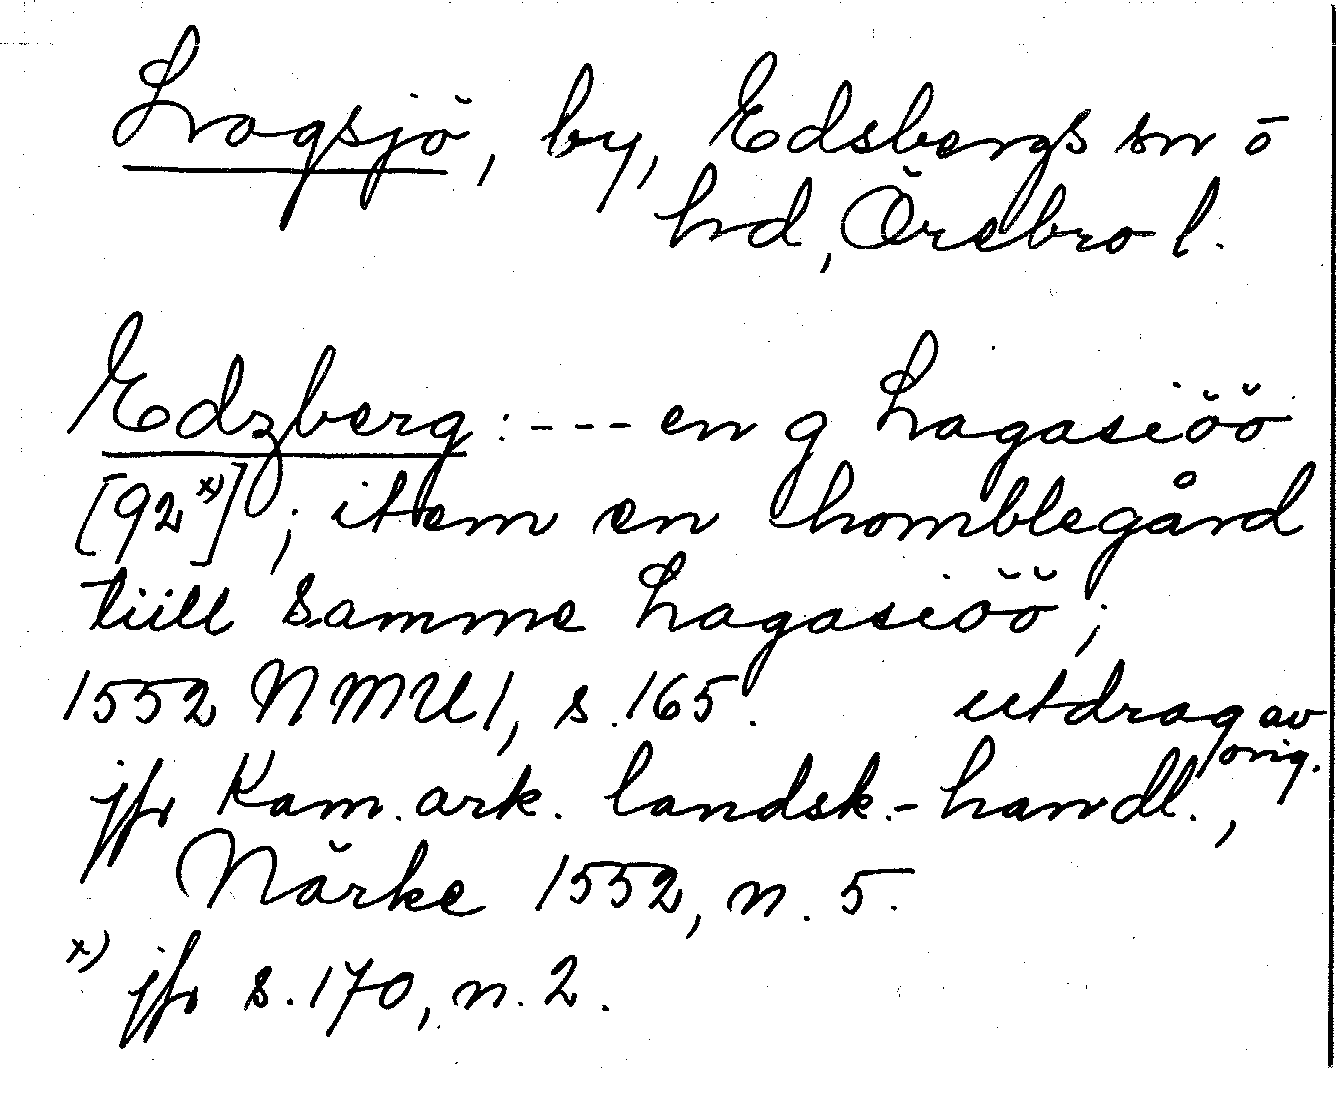 Logsjö, by, Edsbergs sn o
hd, Örebro l.
Edzberg : - - - en g Lagasiöö
[92 x)] ; item en homblegård
tiill samme Lagasiöö ;
1552 NMU 1, s. 165. utdrag av orig.
jfr Kam. ark. landsk.-handl.,
Närke 1552, n. 5.
x) jfr s. 170, n. 2.